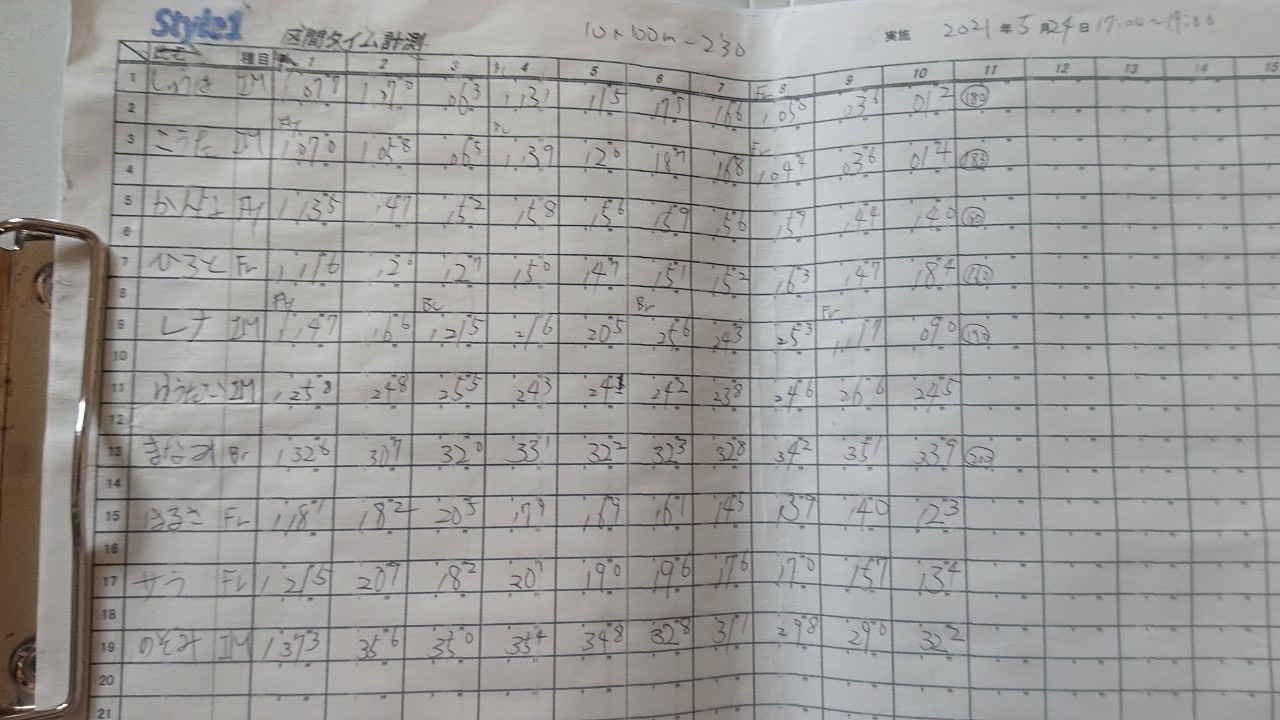 Style1 区間タイム計測 10×100m-2'30 実施 2021年5月24日17:00~19:00
氏名 種目 1 2 3 4 5 6 7 8 9 10 11 12 13 14 15
Fr
1 IM 1.07.9 1.07.0 06.3 1.13.1 11.5 17.5 16.6 1.05.0 03.6 01.2 183
2
Fly Bc Fr
3 こうた IM 1.07.0 1.05.8 06.5 1.13.9 12.0 18.7 16.8 1.04.4 03.6 01.4 183
4
5 Fly 1.13.5 14.7 15.2 15.8 15.6 15.9 15.6 15.9 14.4 14.0
6
7 ひろと Fr 1.11.6 12.0 12.7 15.0 14.7 15.1 15.2 16.3 14.7 18.4
8 Fly Bc Br Fr
9 レナ IM 1.14.7 16.6 1.21.5 21.6 20.5 25.6 24.3 25.3 1.11.7 09.0
10
11 IM 1.25.8 24.8 25.5 24.3 24.2 23.8 24.6 26.6 24.5
12
13 まなみ Br 1.32.6 30.7 32.0 33.1 32.2 32.3 32.8 34.2 35.1 33.9
14
15 はるき Fr 1.18.1 18.2 20.5 17.9 16.9 16.1 14.5 13.9 14.0 12.3
16
17 サラ Fr 1.21.5 20.9 18.2 20.1 19.0 19.6 17.6 17.0 15.7 13.4
18
19 のぞみ IM 1.37.3 35.6 35.0 35.4 34.8 32.8 31.1 29.8 29.0 32.2
20
21